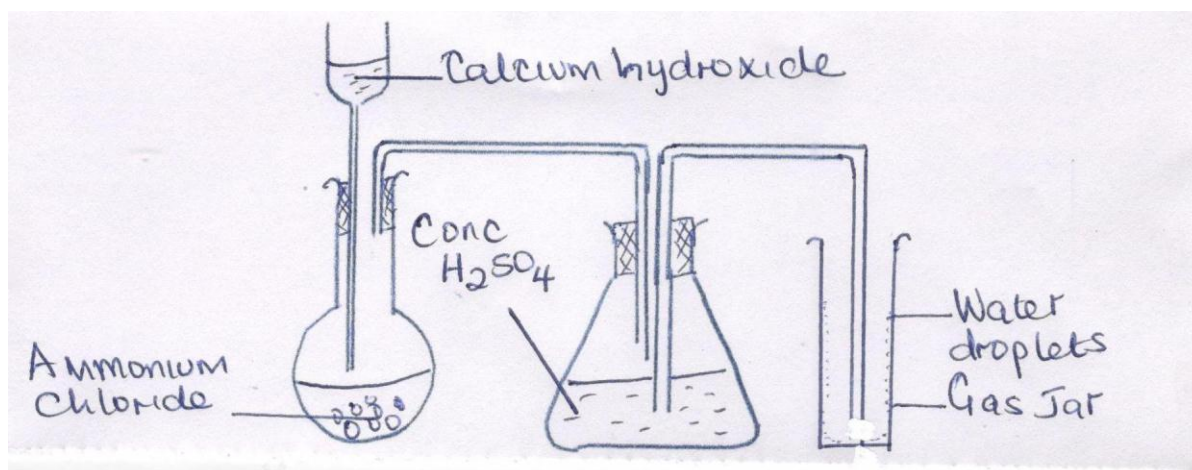 Calcium hydroxide
Conc
H₂SO₄
Ammonium
Chloride
Water
droplets
Gas Jar